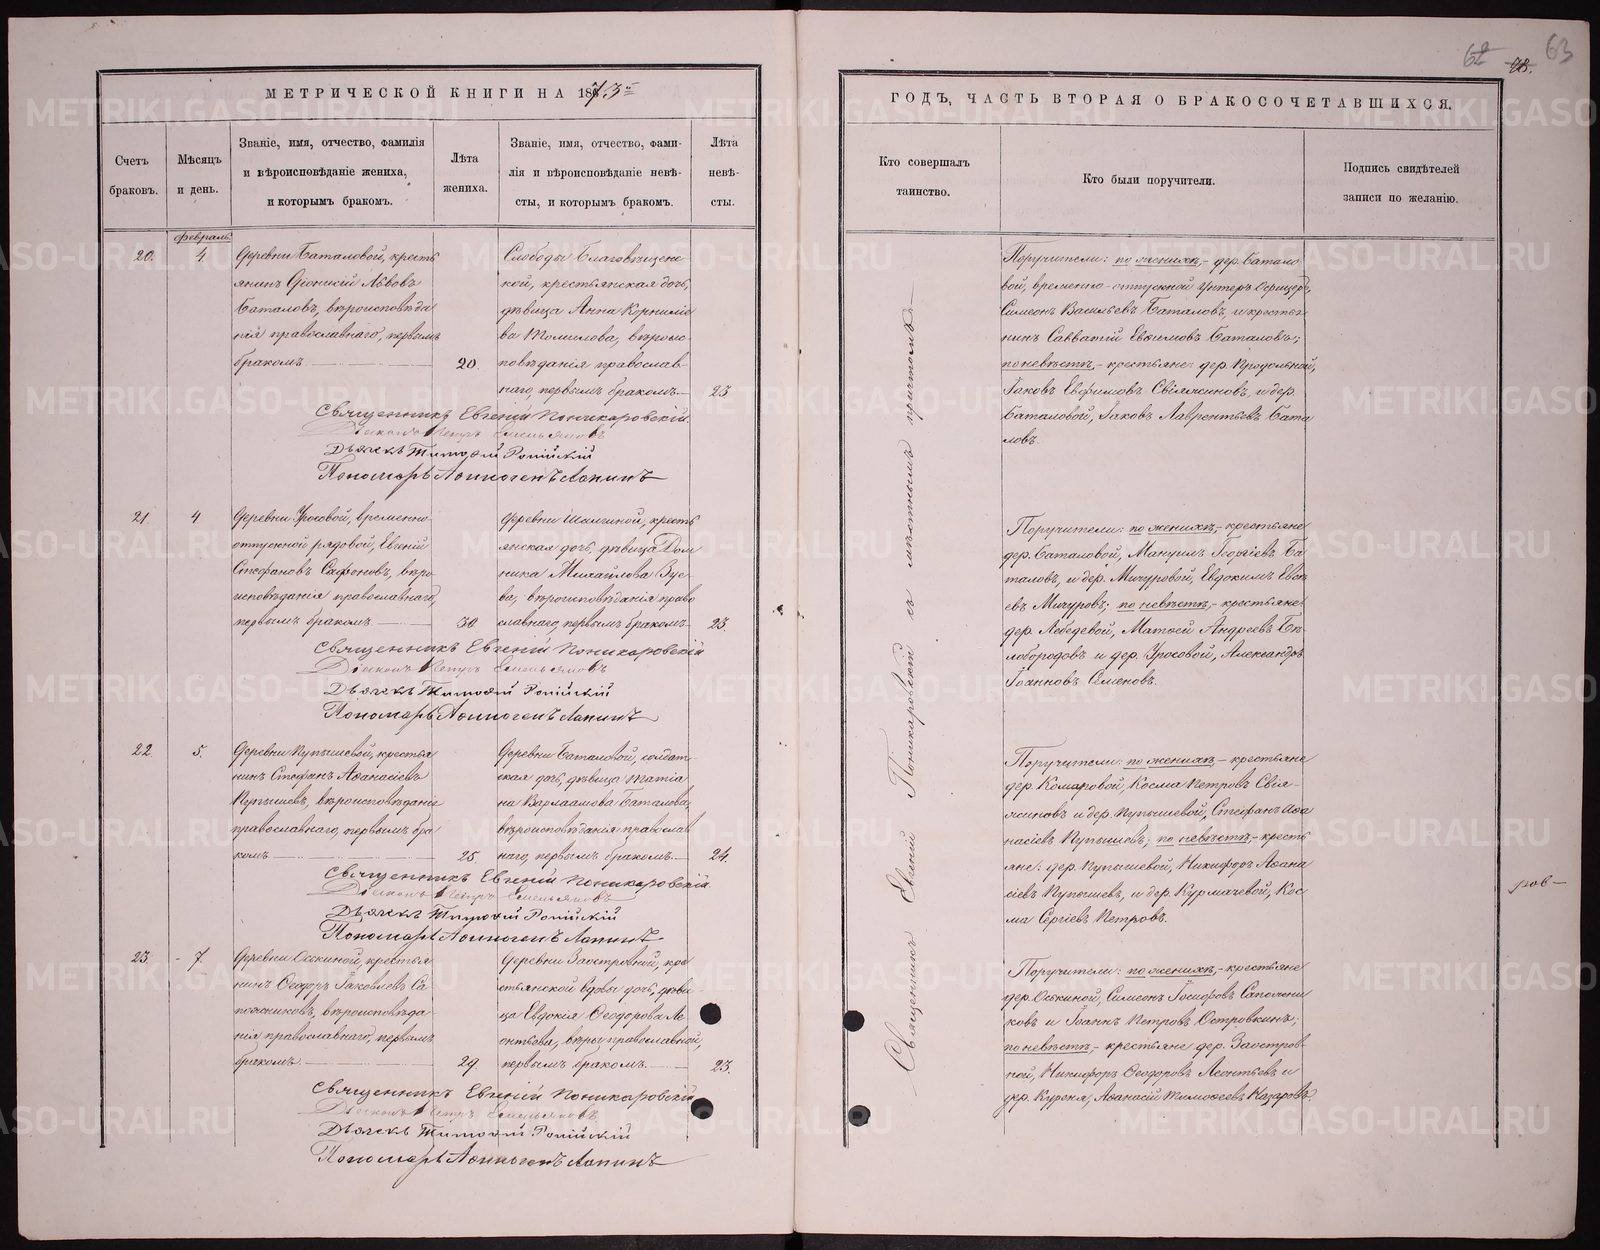 МЕТРИЧЕСКОЙ КНИГИ НА 1873й
Счетъ браковъ.
Мѣсяцъ и день.
Званіе, имя, отчество, фамилія
и вѣроисповѣданіе жениха,
и которымъ бракомъ.
Лѣта жениха.
Званіе, имя, отчество, фами-
лія и вѣроисповѣданіе невѣ-
сты, и которымъ бракомъ.
Лѣта невѣ-
сты.
Февраль
20. 4
Деревни Баталовой, кресть
янинъ Діонисій Львовъ
Баталовъ, вѣроисповѣда
нія православнаго, первымъ
бракомъ 20.
Слободы Благовѣщенс
кой, крестьянская дочь,
дѣвица Анна Корнилiе
ва Томилова, вѣроис
повѣданія православ
наго, первымъ бракомъ 25
Священникъ Евгеній Поникаровскій
Діаконъ Петръ Емельяновъ
Дьячекъ Тимоѳій Ропійскій
Пономарь Аѳиногенъ Лапинъ
21 4
Деревни Уросовой, временно-
отпускной рядовой, Евгеній
Стефановъ Сафоновъ, вѣро
исповѣданія православнаго,
первымъ бракомъ 30
Деревни Шалгиной, кресть
янская дочь, дѣвица Дом
ника Михайлова Зуе
ва, вѣроисповѣданія право
славнаго, первымъ бракомъ 23.
Священникъ Евгеній Поникаровскій
Діаконъ Петръ Емельяновъ
Дьячекъ Тимоѳій Ропійскій
Пономарь Аѳиногенъ Лапинъ
22. 5.
Деревни Пупышевой, крестья
нинъ Стефанъ Аѳанасіевъ
Пупышевъ, вѣроисповѣданія
православнаго, первымъ бра
комъ 25.
Деревни Баталовой, солдат-
ская дочь, дѣвица Татіа
на Варлаамова Баталова,
вѣроисповѣданія православ
наго, первымъ бракомъ 24.
Священникъ Евгеній Поникаровскій
Діаконъ Петръ Емельяновъ
Дьячекъ Тимоѳій Ропійскій
Пономарь Аѳиногенъ Лапинъ
23. 7.
Деревни Оськиной, крестья
нинъ Ѳеодоръ Іаковлевъ Са
пожниковъ, вѣроисповѣда-
нія православнаго, первымъ
бракомъ 29.
Деревни Заостровной, кре
стьянской вдовы дочь, дѣви
ца Евдокія Ѳеодорова Ле
онтьева, вѣры православной,
первымъ бракомъ 23.
Священникъ Евгеній Поникаровскій
Діаконъ Петръ Емельяновъ
Дьячекъ Тимоѳій Ропійскій
Пономарь Аѳиногенъ Лапинъ
62 63
ГОДЪ, ЧАСТЬ ВТОРАЯ О БРАКОСОЧЕТАВШИХСЯ.
Кто совершалъ
таинство.
Кто были поручители.
Подпись свидѣтелей
записи по желанію.
Священникъ Евгеній Поникаровскій съ мѣстнымъ причтомъ
Поручители: по женихѣ,- дер. Батало
вой, временно-отпускной Унтеръ Офицеръ,
Симеонъ Васильевъ Баталовъ, и крестья
нинъ Савватій Евѳимовъ Баталовъ;
по невѣстѣ,- крестьяне: дер. Продольной,
Іаковъ Евфимовъ Свіяжниновъ, и дер.
Баталовой, Іаковъ Лаврентьевъ Бата
ловъ.
Поручители: по женихѣ,- крестьяне
дер. Баталовой, Мануилъ Георгіевъ Ба
таловъ, и дер. Мичуровой, Евдокимъ Евсе
евъ Мичуровъ; по невѣстѣ,- крестьяне
дер. Лебедевой, Матѳей Андреевъ Бѣ
лобородовъ и дер. Уросовой, Александръ
Іоанновъ Семеновъ.
Поручители: по женихѣ,- крестьяне
дер. Комаровой, Косма Петровъ Свія-
жиновъ и дер. Пупышевой, Стефанъ Аѳа
насіевъ Пупышевъ; по невѣстѣ,- кресть
яне: дер. Пупышевой, Никифоръ Аѳана
сіевъ Пупышевъ, и дер. Курмачевой, Кос
ма Сергіевъ Петровъ.
ров-
Поручители: по женихѣ,- крестьяне
дер. Оськиной, Симеонъ Іосифовъ Сапожни
ковъ и Іоаннъ Петровъ Островкинъ;
по невѣстѣ,- крестьяне дер. Заостров
ной, Никифоръ Ѳеодоровъ Леонтьевъ и
дер. Куреня, Аѳанасій Тимоѳеевъ Казаровъ.
METRIKI.GASO-URAL.RU